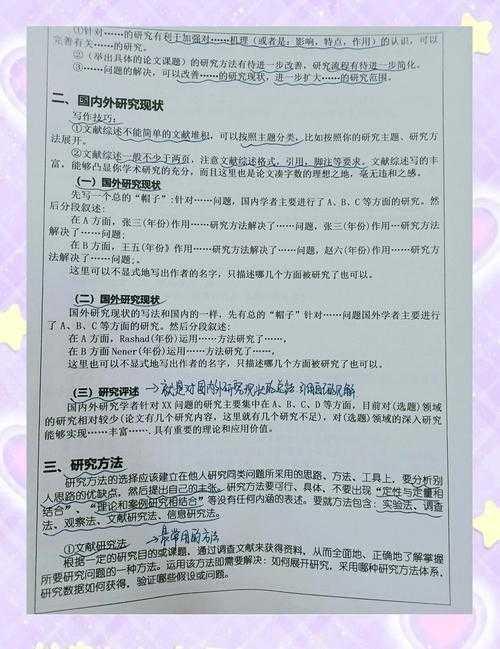 ①针对……的研究有利于加强对……机理（或者是：影响，特点，作用）的认识，可以
完善有关……的研究。
②（举出具体的论文课题）的研究方法有待进一步改善，研究流程有待进一步简化。
③……问题的解决，可以改善……的研究现状，进一步扩大……的研究范围。
二、国内外研究现状
写作技巧：
①文献综述不能简单的文献堆积，可以按照主题分类，比如按照你的研究主题、研究方
法展开。
②文献综述一般不少于两页，注意文献综述格式，引用，脚注等要求。文献综述写的丰
富，能够凸显你学术研究的充分，而且这里也是论文凑字数的理想之地，毫无违和之感。
（一）国外研究现状
先写一个总的“帽子”：针对……问题，国内学者主要进行了 A、B、C 等方面的研究。然
后分段叙述：
在 A 方面，张三(年份)作用……研究方法解决了……问题，张三(年份)作用…研究方法
解决了……问题；
在 B 方面，王五(年份》作用……研究方法解决了……问题，赵六(年份)作用……研究方
法解决了……问题；。
这里可以不显式地写出作者的名字，只描述哪几个方面被研究了也可以。
（二）国外研究现状
国外研究现状的写法和国内的一样，先有总的“帽子”针对……问题国外学者主要进行
了 A、B、C 等方面的研究。然后分段叙述：
在 A 方面，Rashad(年份)运用……方法研究了……，
在 B 方面 Nener(年份)运用……方法研究了……。
这里也可以不显式地写出作者的名字，只描述哪几个方面被研究了也可以。
（三）研究评述 →就是对国内外研究现状的总结 引用自己的见解
国内外研究学者针对 XX 问题的研究主要集中在 A、B、C、D 等方面，目前对(选题)领域
的研究相对较少(论文有几个研究内容，这里就有几个研究不足)，对(选题)领域的深入研究
能够实现……丰富……：具有重要的理论和应用价值。
三、研究方法
研究方法的选择应该建立在他人研究同类问题所采用的思路、方法、工具上，要分析别
人思路的优缺点，然后提出自己的主张。研究方法要可行、具体，不要出现“定性与定量相
结合”、“理论和案例研究相结合”等没有任何内涵的表述。要就方法包含：实验法、调查
法、观察法、文献研究法、信息研究法。
①文献研究法 →最常用的方法
根据一定的研究目的或课题，通过调查文献来获得资料，从而全面地、正确地了解掌握
所要研究问题的一种方法。运用该方法即需要解决：如何展开研究，采用哪种研究方法体系，
研究数据如何获得，验证哪些假设或问题。